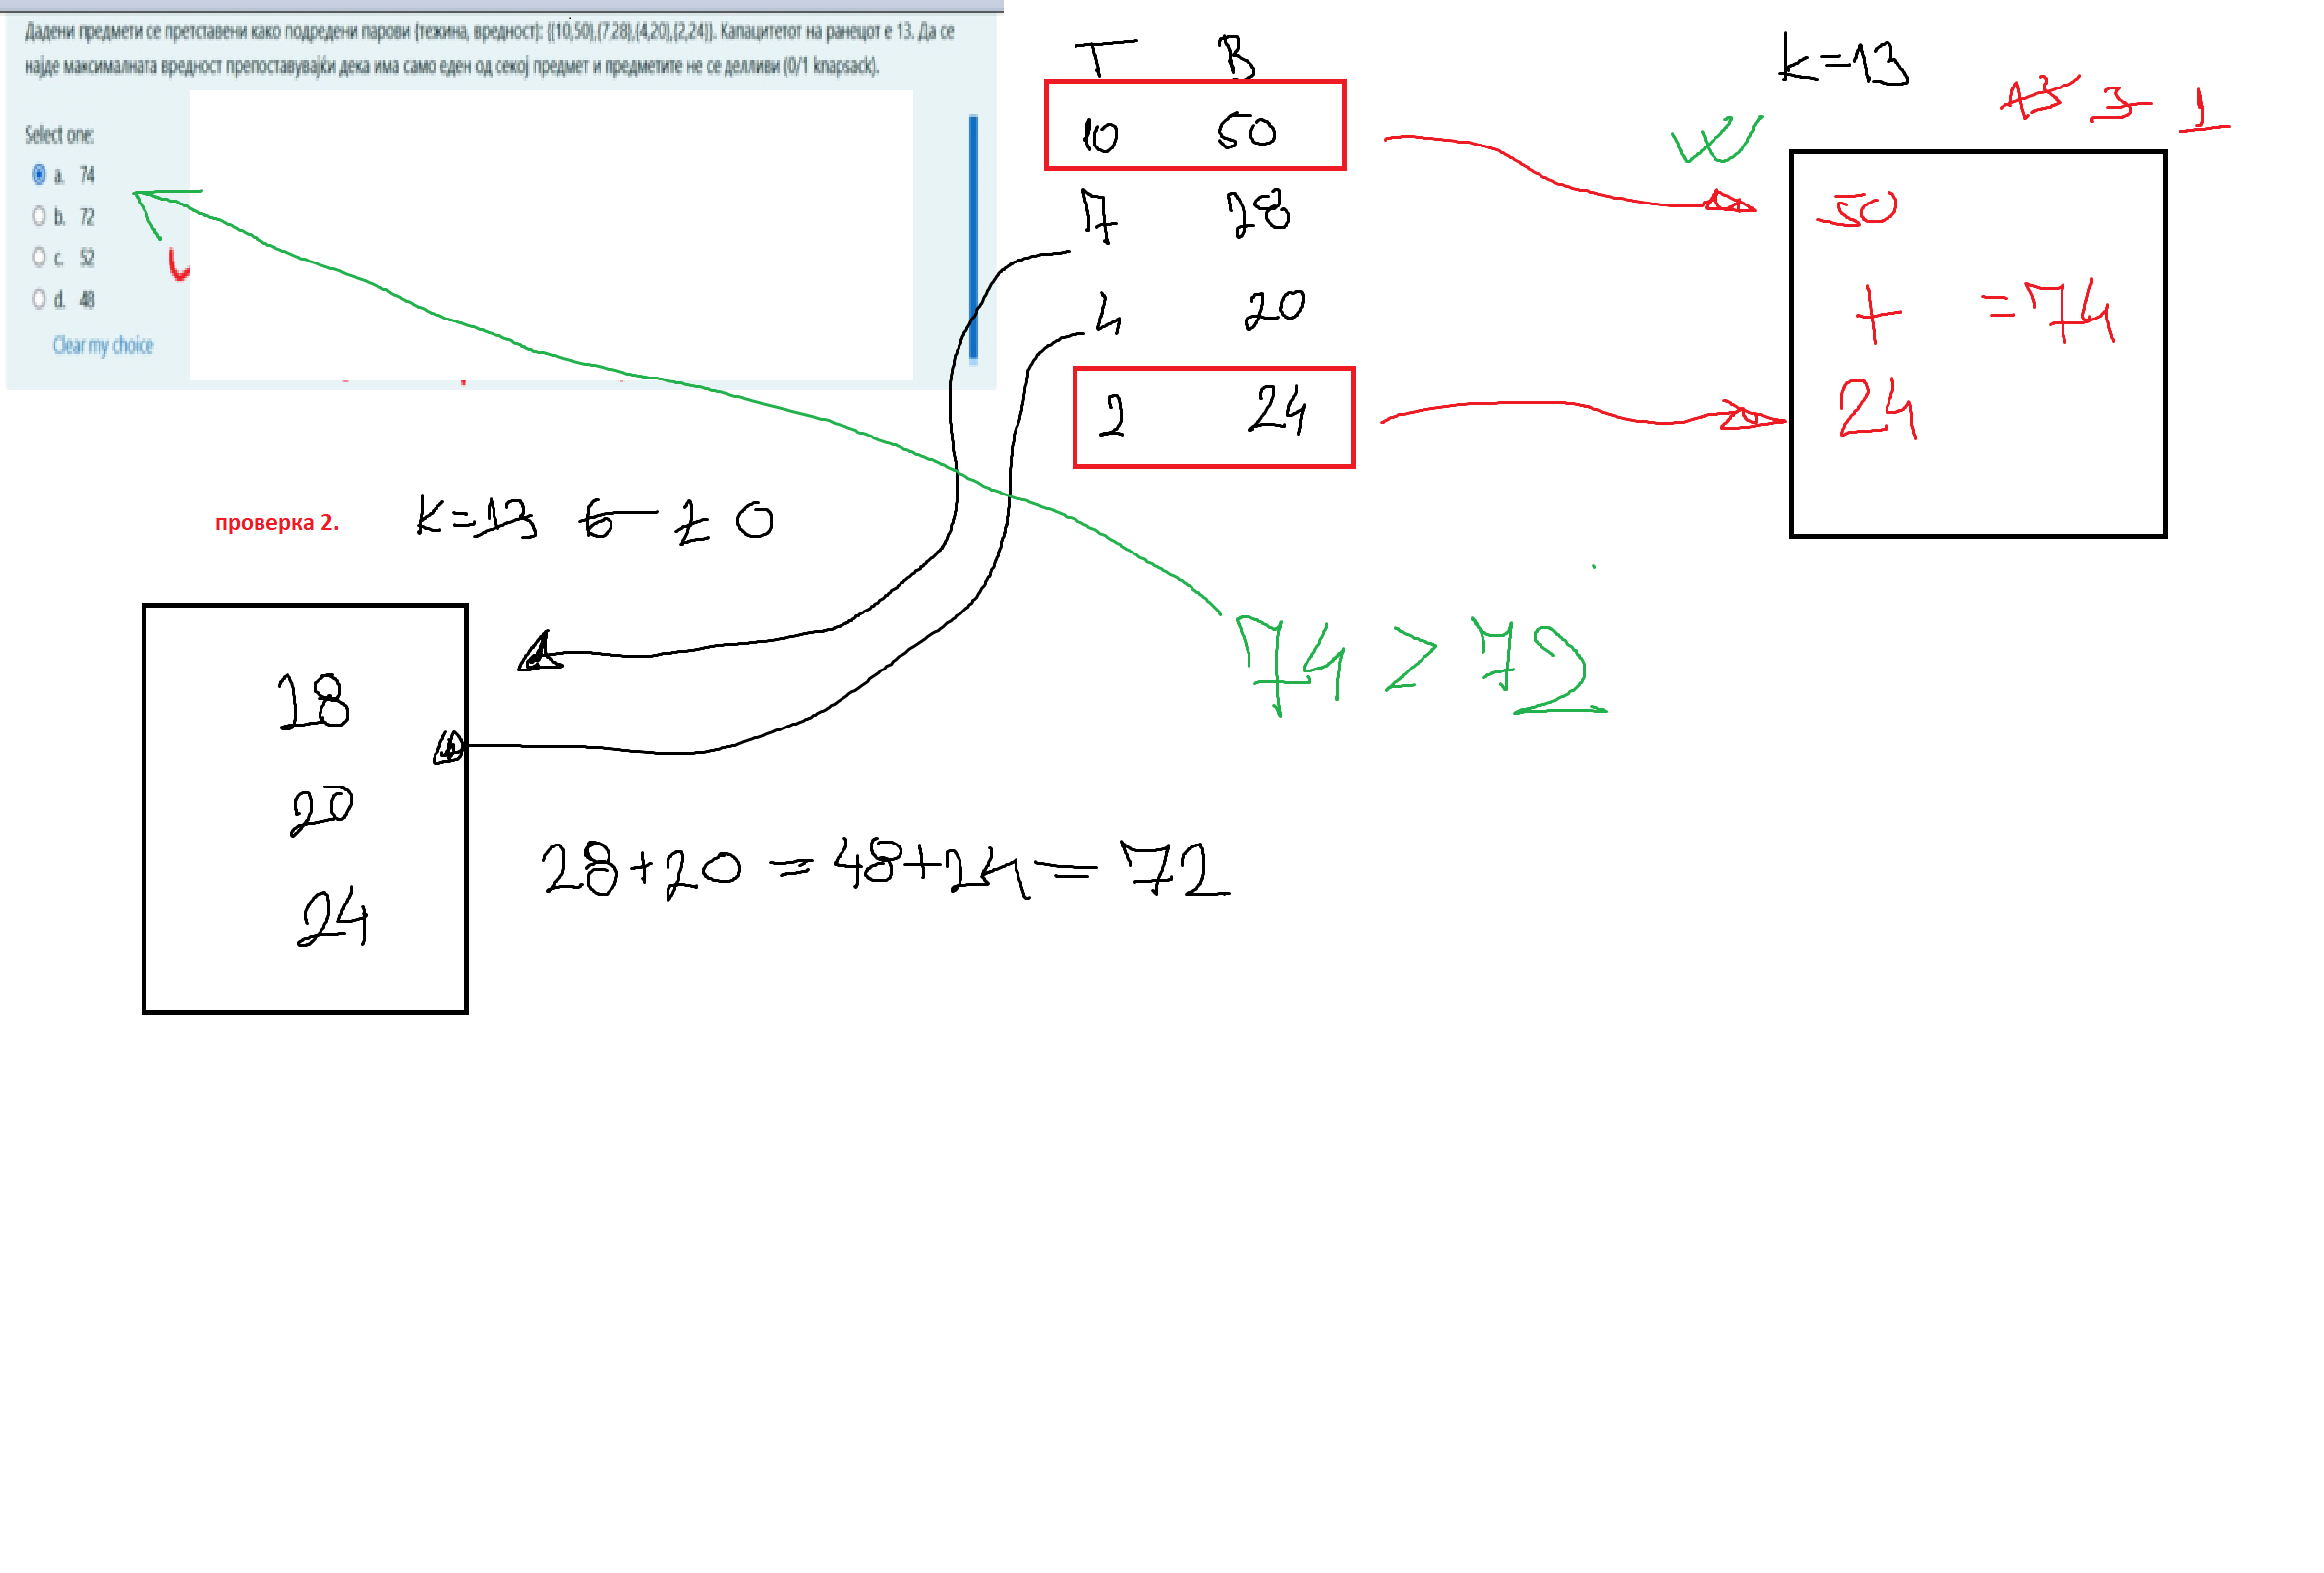 Дадени предмети се претставени како подредени парови (тежина, вредност): {(10,50),(7,28),(4,20),(2,24)}. Капацитетот на ранецот е 13. Да се
најде максималната вредност препоставувајќи дека има само еден од секој предмет и предметите не се делливи (0/1 knapsack).
Select one:
a. 74
b. 72
c. 52
d. 48
Clear my choice
T B
10 50
7 28
4 20
2 24
k=13
13 3 1
50
+ =74
24
проверка 2.
K=13 6 2 0
74 > 72
28
20
24
28+20=48+24=72